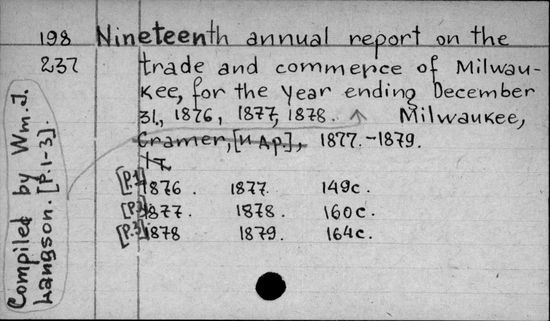 198 Nineteenth annual report on the
237 trade and commerce of Milwau-
kee, for the year ending December
31, 1876, 1877, 1878. Milwaukee,
Cramer, [и др.], 1877.-1879.
[P.1] 1876 1877. 149c.
[P.2] 1877. 1878. 160c.
[P.3] 1878 1879. 164c.
Compiled by Wm. J.
Langson. [P.1-3].